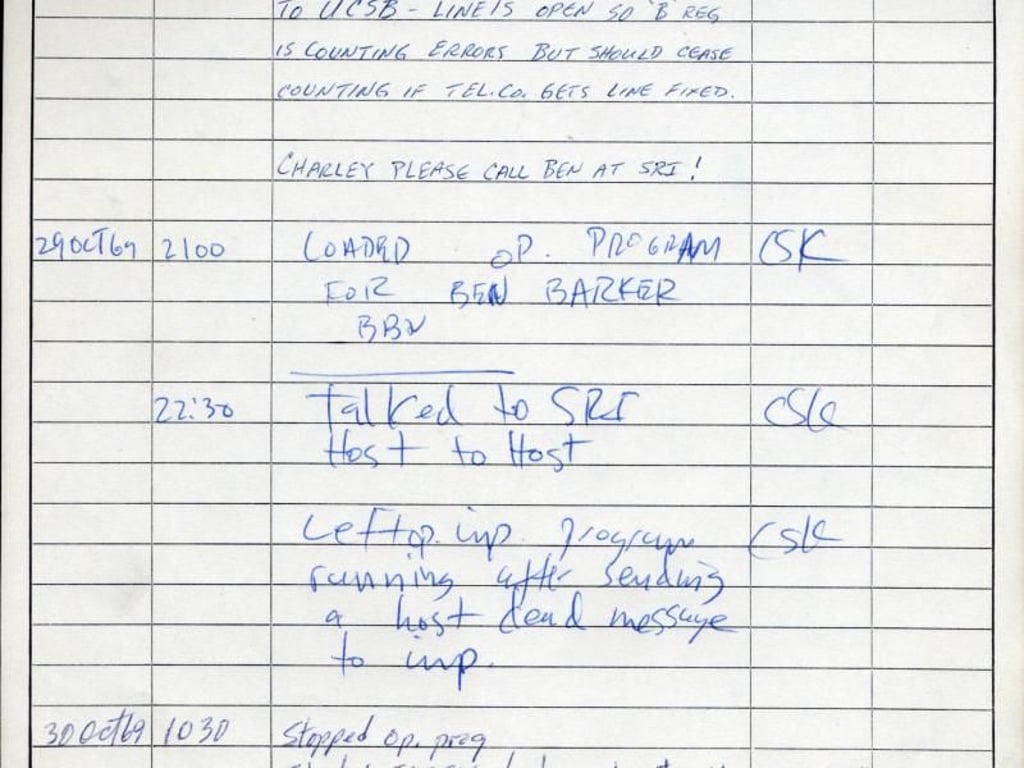 TO UCSB - LINE IS OPEN SO 'B' REG
IS COUNTING ERRORS BUT SHOULD CEASE
COUNTING IF TEL.CO. GETS LINE FIXED.
CHARLEY PLEASE CALL BEN AT SRI!
29OCT69 2100 LOADED OP. PROGRAM CSK
FOR BEN BARKER
BBN
22:30 Talked to SRI CSK
Host to Host
Left op. imp. program CSK
running after sending
a host dead message
to imp.
30Oct69 1030 Stopped op. prog